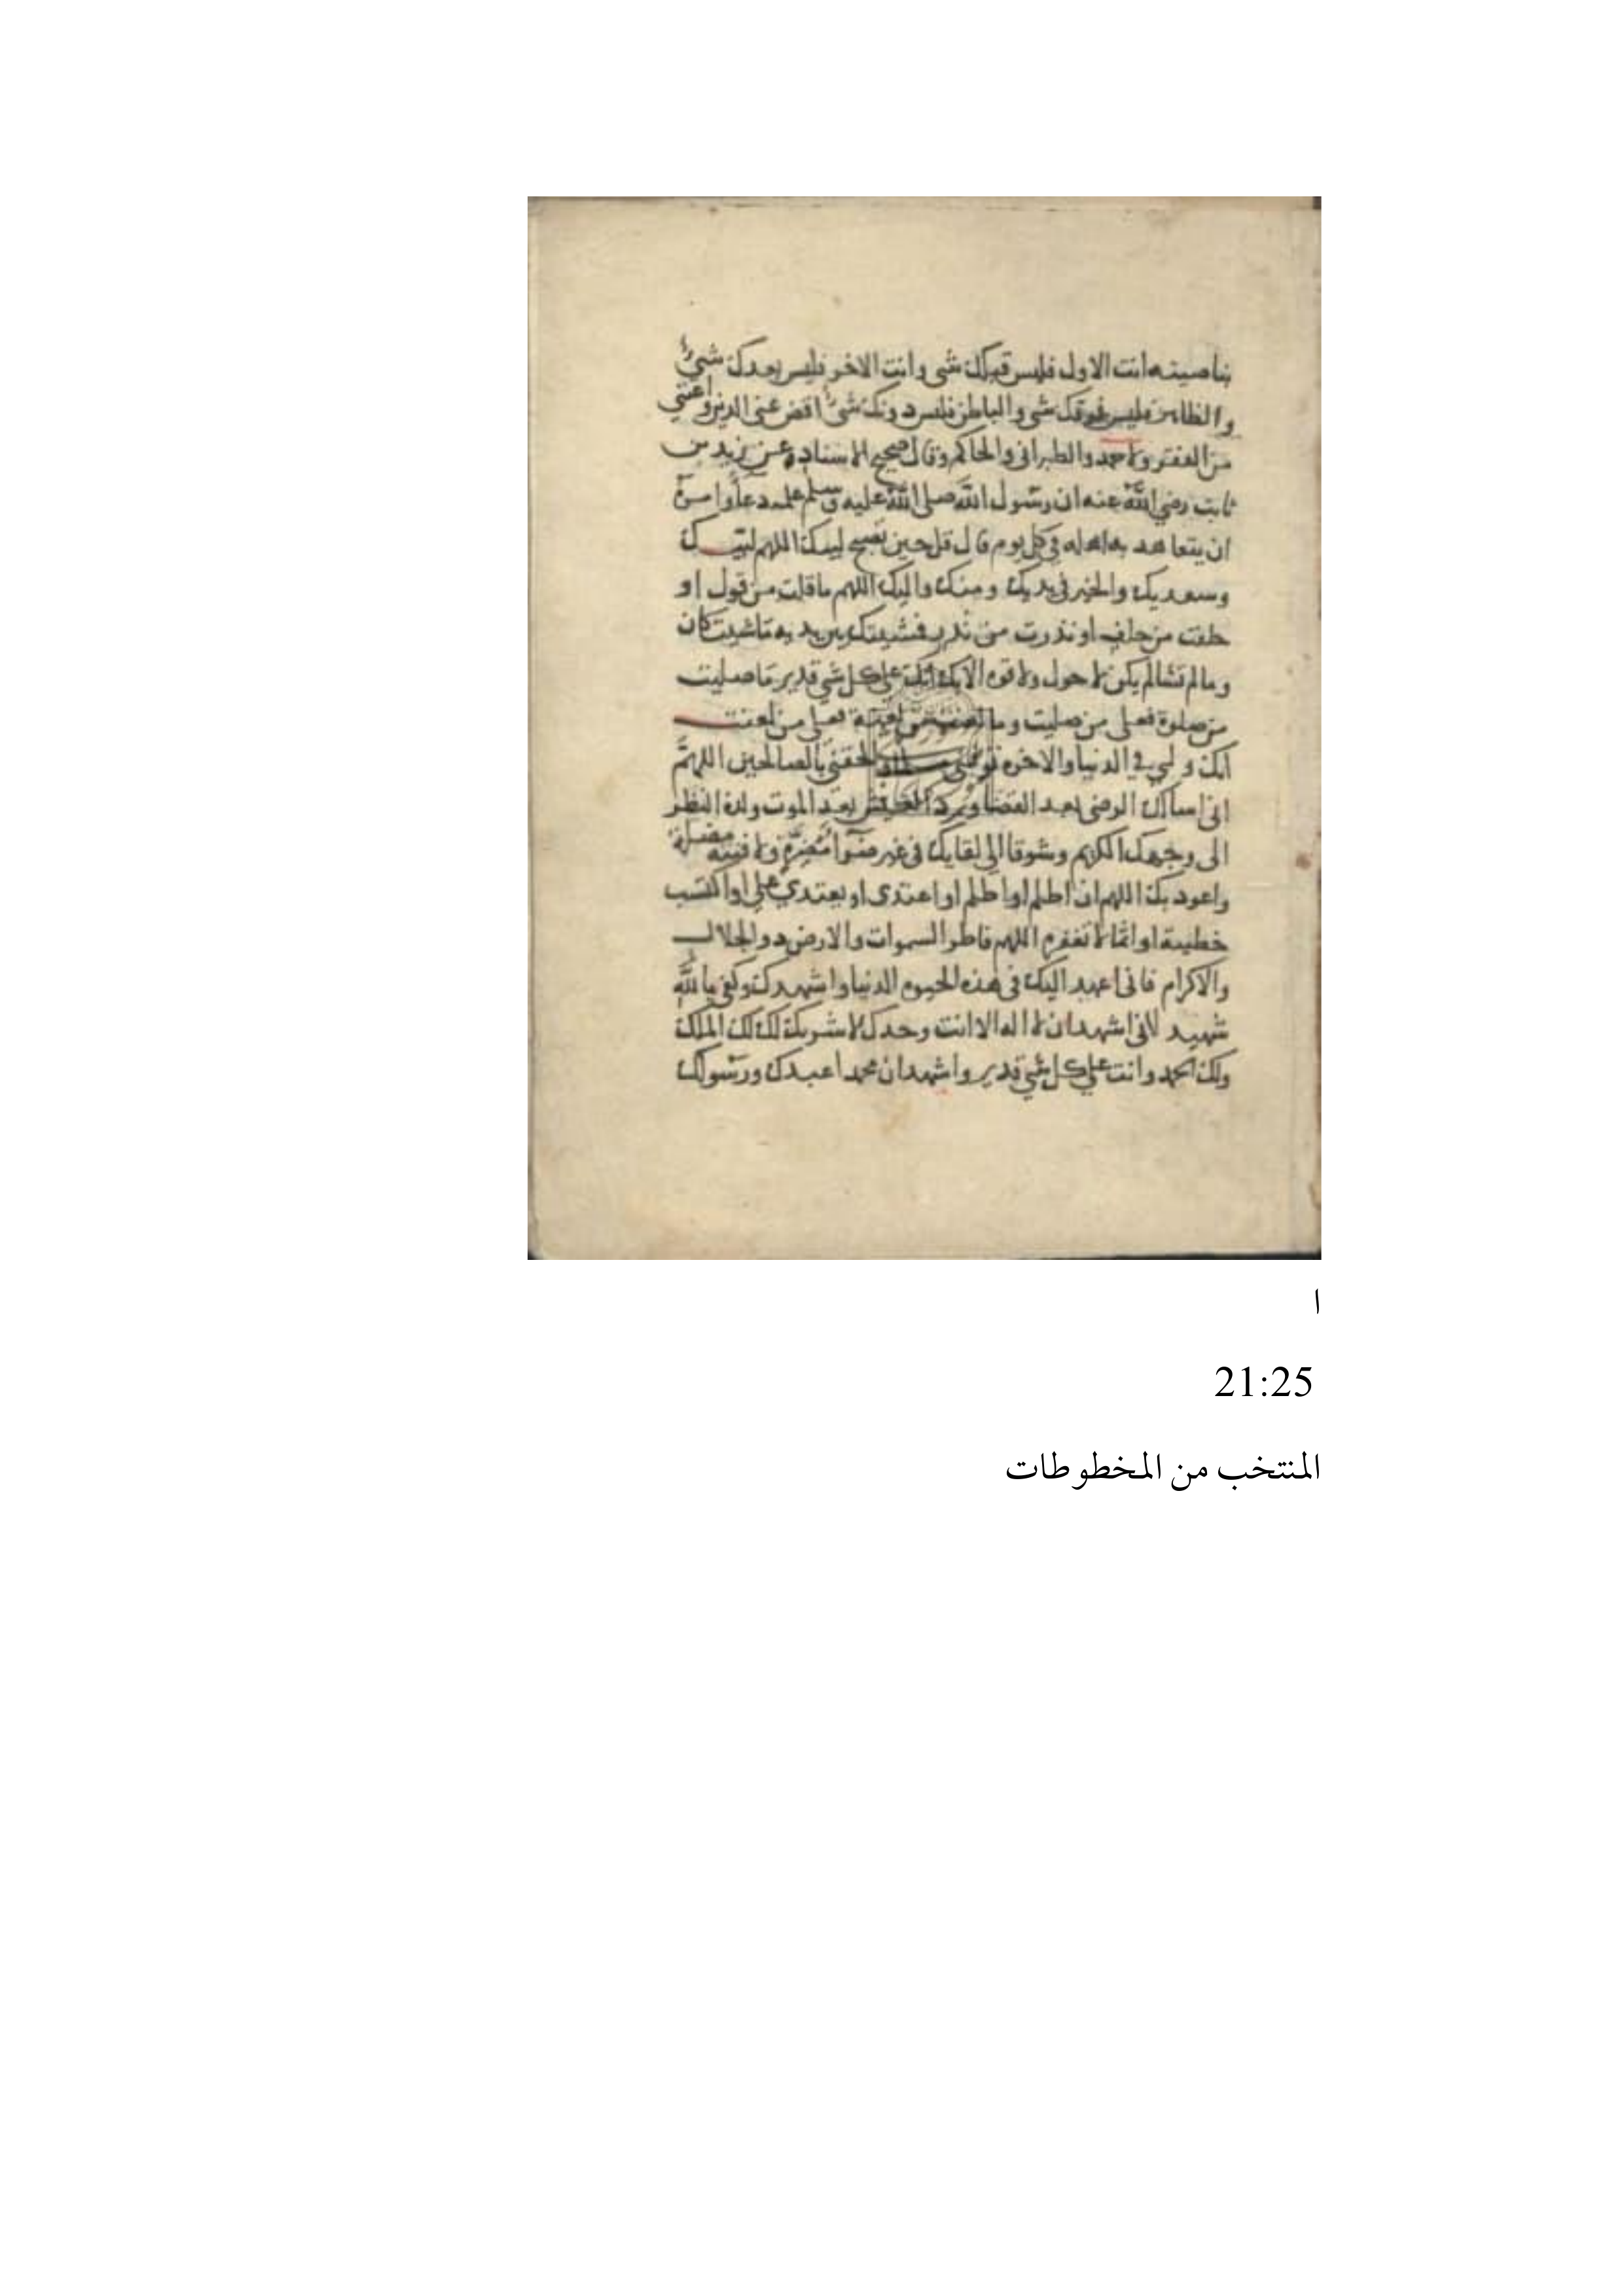 بناصيته انت الاول فليس قبلك شى وانت الاخر فليس بعدك شئ
والظاهر فليس فوقك شى والباطن فليس دونك شئ اقض عنى الدين واغنني
من الفقر ولاحمد والطبرانى والحاكم وقال صحيح الاسناد وعن زيد بن
ثابت رضي الله عنه ان رسول الله صلى الله عليه وسلم علمه دعا وامره
ان يتعاهد به اهله في كل يوم قال قل حين تصبح لبيك اللهم لبيك
وسعديك والخير فى يديك ومنك واليك اللهم ما قلت من قول او
حلفت من حلف او نذرت من نذر فمشيتك بين يديه ما شيت كان
وما لم تشا لم يكن لا حول ولا قوه الا بك انك على كل شي قدير ما صليت
من صلوة فعلى من صليت وما لعنت من لعنة فعلى من لعنت
انك ولي في الدنيا والاخره توفني مسلما والحقني بالصالحين اللهم
انى اسالك الرضى بعد القضا وبرد العيش بعد الموت ولذة النظر
الى وجهك الكريم وشوقا الى لقايك فى غير ضرا مضرة ولا فتنه مضلة
واعوذ بك اللهم ان اظلم او اظلم او اعتدى او يعتدي علي او اكتسب
خطيىة او اثما لا تغفره اللهم فاطر السموات والارض ذو الجلال
والاكرام فانى اعهد اليك فى هذه الحيوه الدنيا واشهدك وكفى بالله
شهيد لانى اشهد ان لا اله الا انت وحدك لا شريك لك لك الملك
ولك الحمد وانت على كل شي قدير واشهد ان محمدا عبدك ورسولك
ا
21:25
المنتخب من المخطوطات